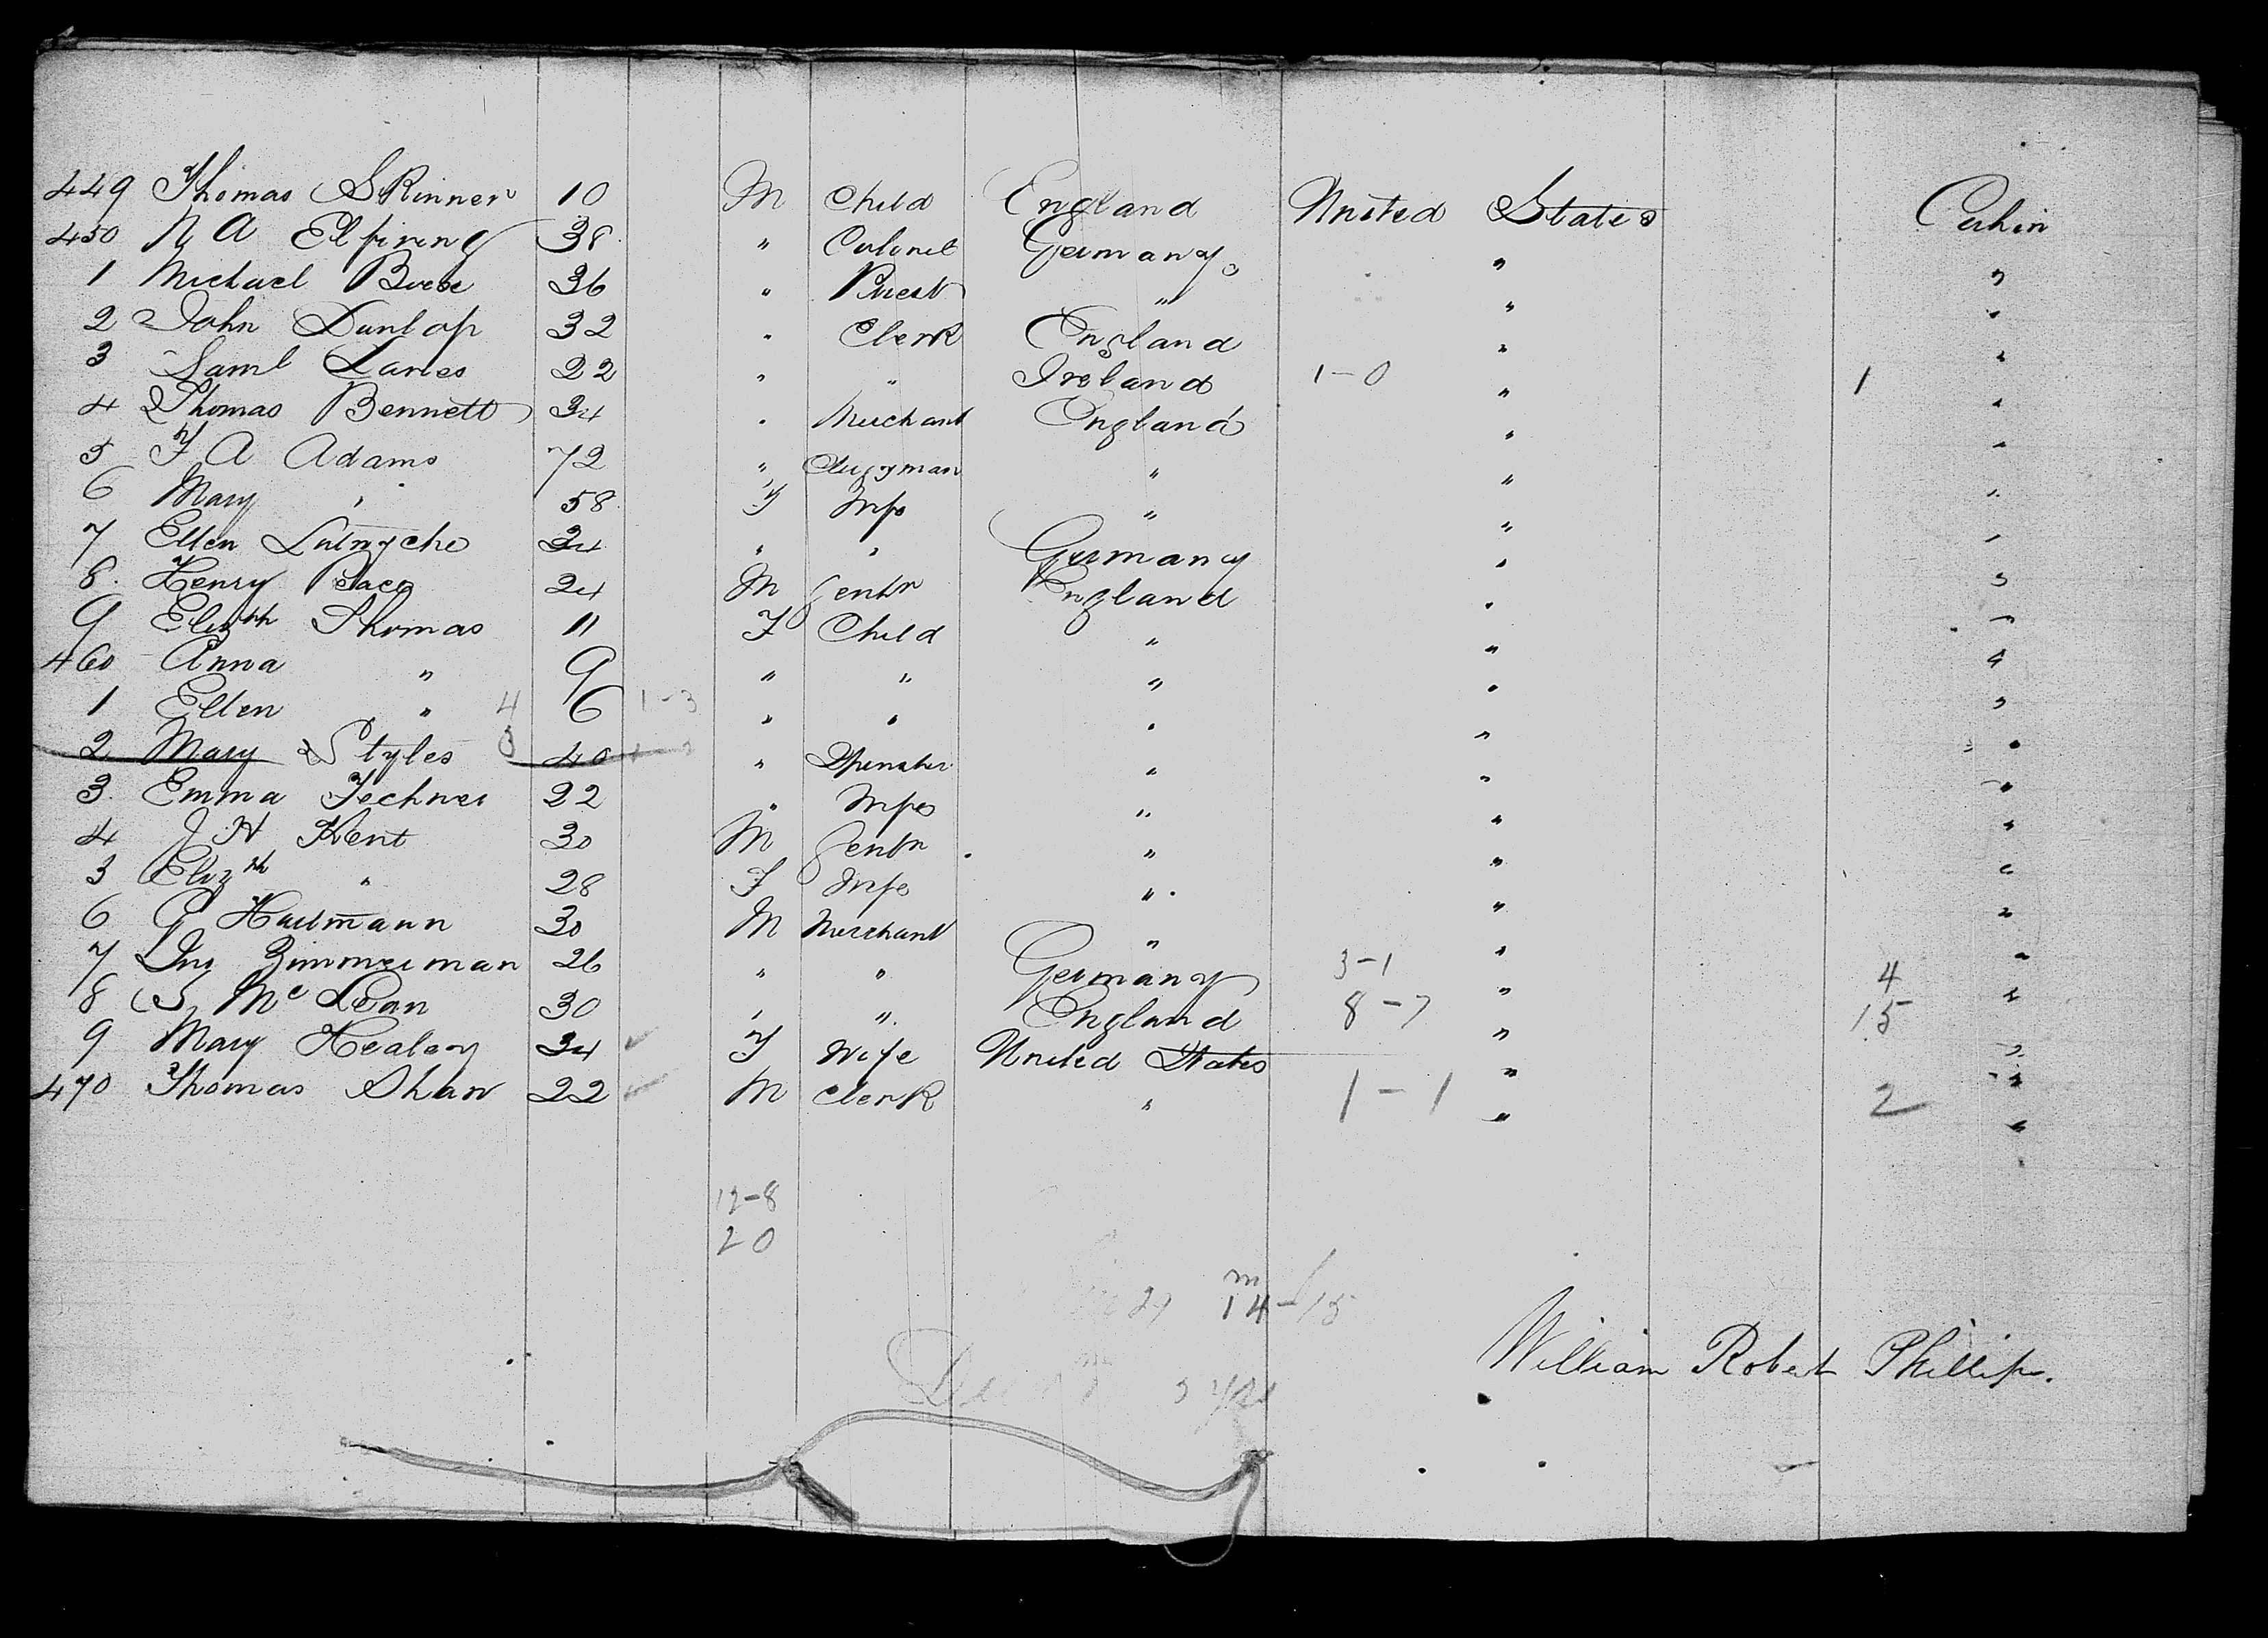 449 Thomas Skinner 10 M Child England United States Cabin
450 N A Elpining 38 " Colonel Germany " "
1 Michael 36 " Priest " " "
2 John Dunlop 32 " Clerk England " "
3 Saml Lanes 22 " " Ireland 1-0 " 1 "
4 Thomas Bennett 34 " Merchant England " "
5 F A Adams 72 " Clergyman " " "
6 Mary " 58 F Wife " " "
7 Ellen 34 " " Germany " "
8 Henry Pace 24 M Gentn England " "
9 Elizth Thomas 11 F Child " " "
460 Anna " 9 " " " " "
1 Ellen " 4 6 1-3 " " " " "
2 Mary Styles 40 " Spinster " " "
3 Emma Fechner 22 " Wife " " "
4 J H Kent 30 M Gentn " " "
5 Elizth " 28 F Wife " " "
6 G Hartmann 30 M Merchant " " "
7 Zimmerman 26 " " Germany 3-1 " 4 "
8 S McLean 30 " " England 8-7 " 15 "
9 Mary Healey 34 F Wife United States " "
470 Thomas Shaw 22 M Clerk " 1-1 " 2 "
12-8
20
29 m 14-15
William Robert Phillips.